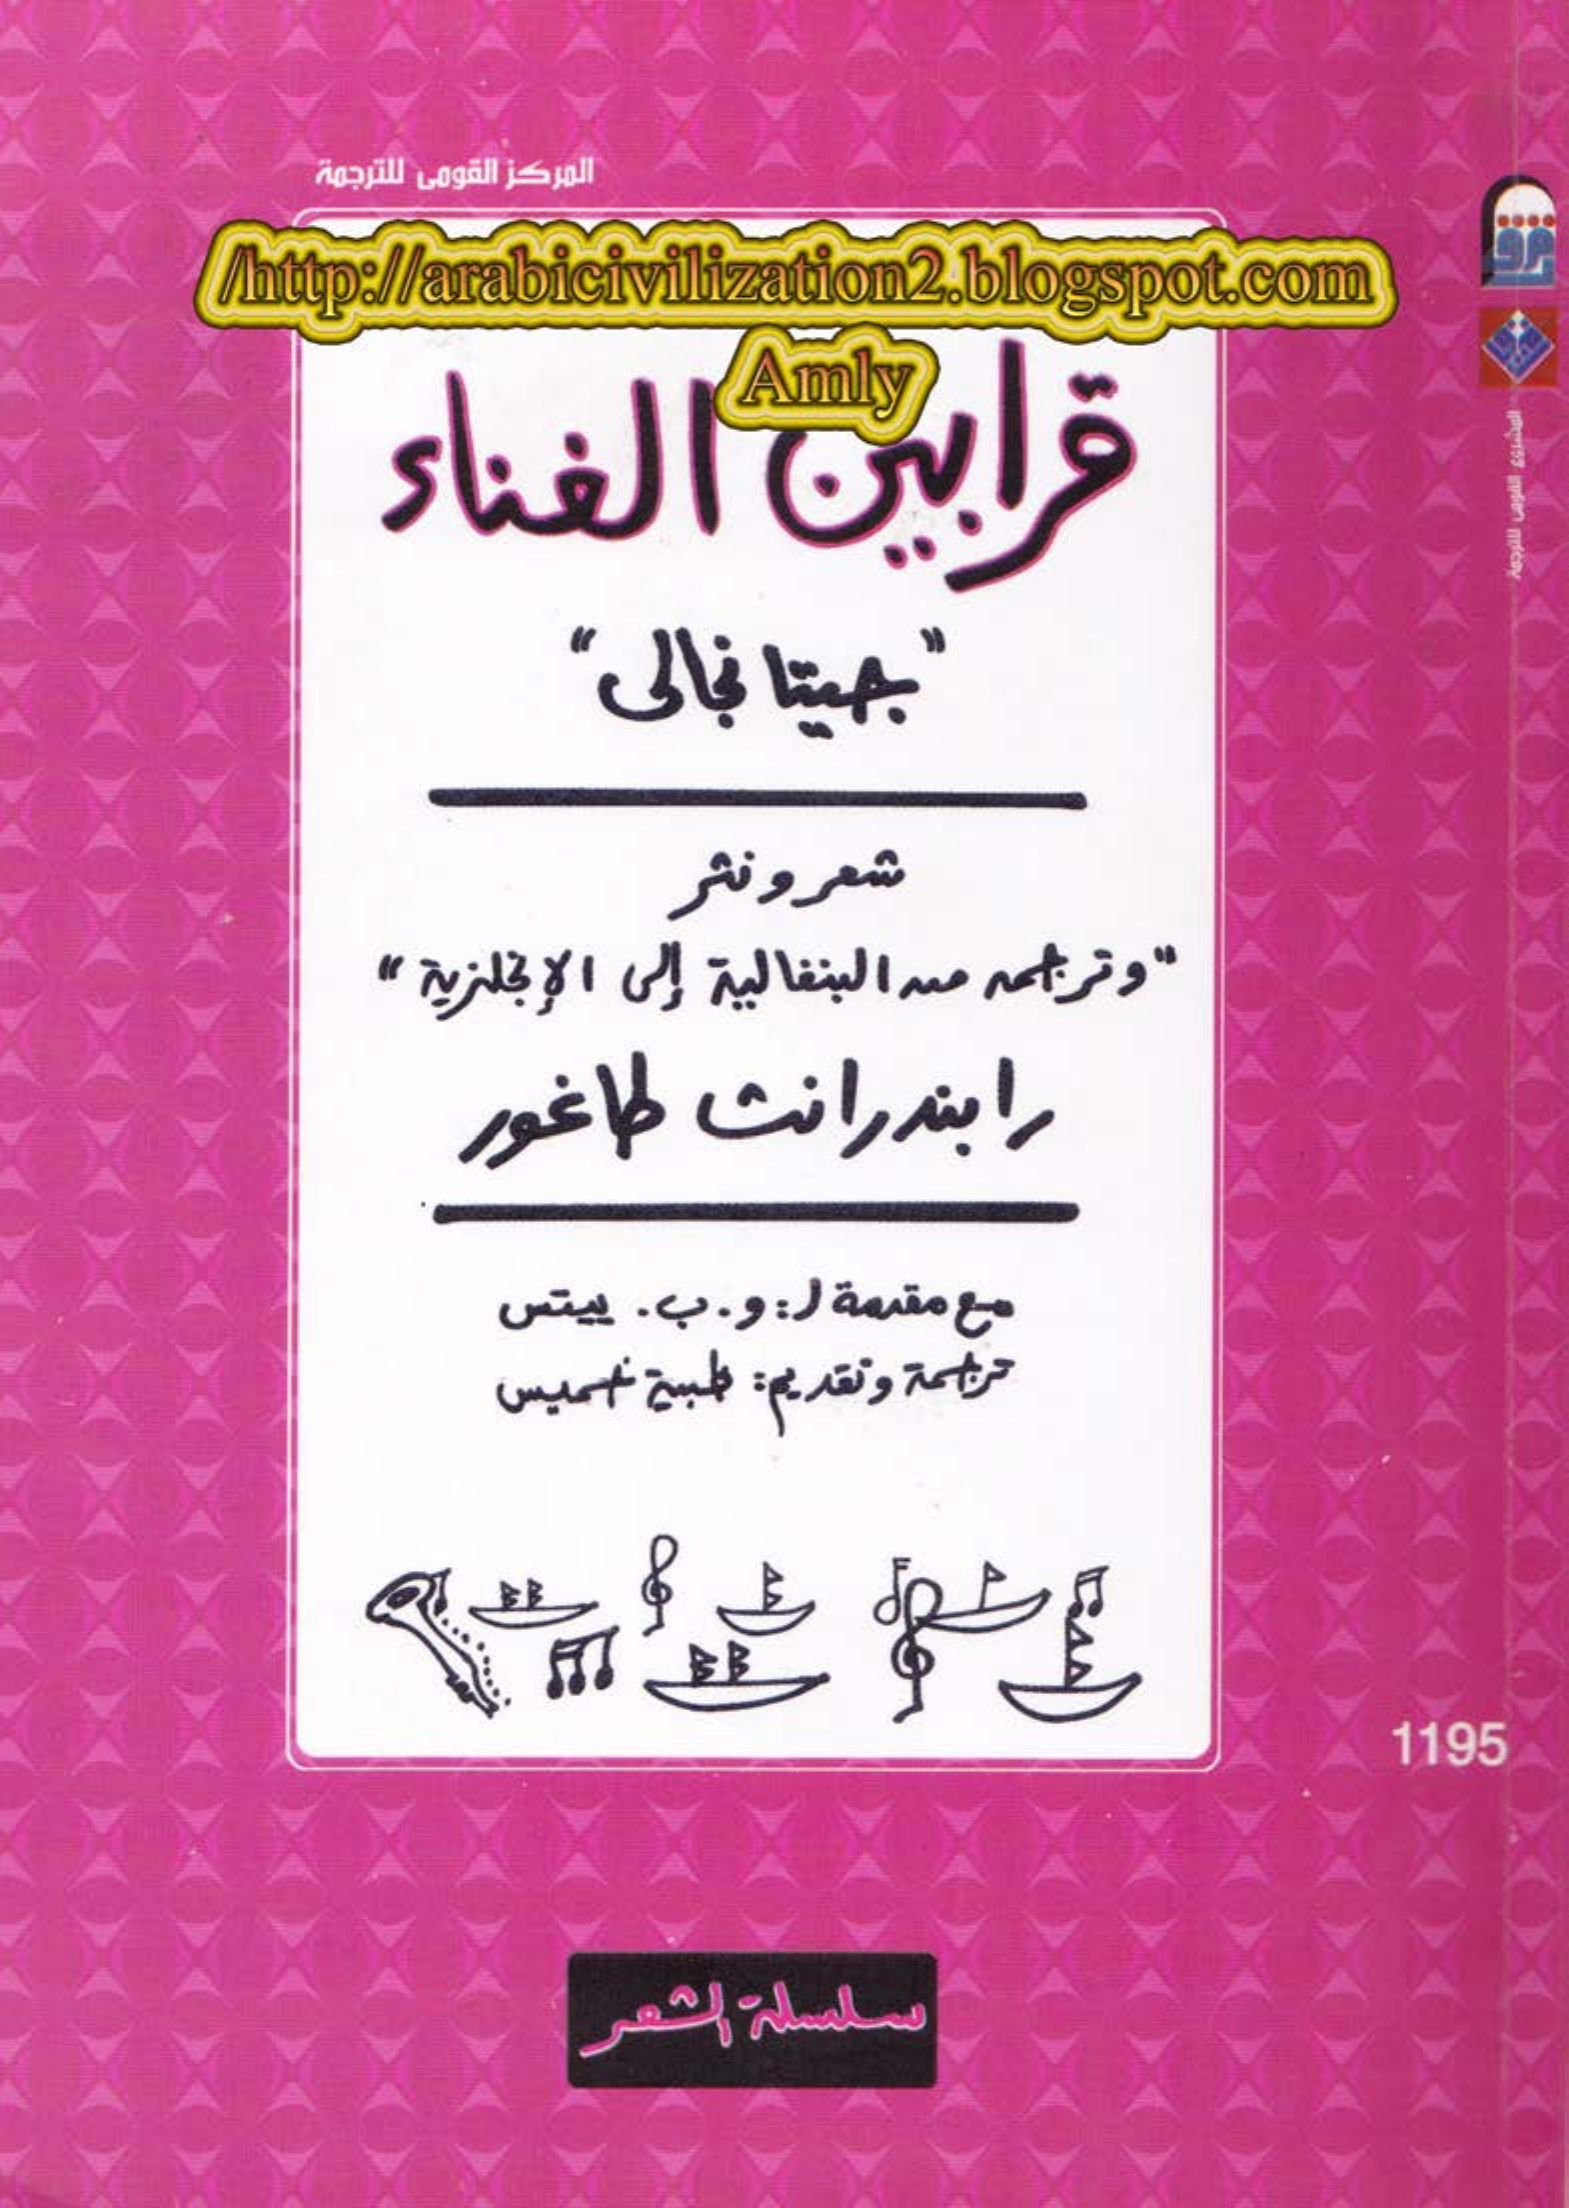 المركز القومى للترجمة
/http://arabicivilization2.blogspot.com
Amly
قرابين الغناء
"جيتانجالى"
شعر ونثر
"وترجمه من البنغالية إلى الإنجلزية"
رابندرانث طاغور
مع مقدمة ل: و. ب. ييتس
ترجمة وتقديم: ظبية خميس
1195
سلسلة الشعر
المشروع القومى للترجمة